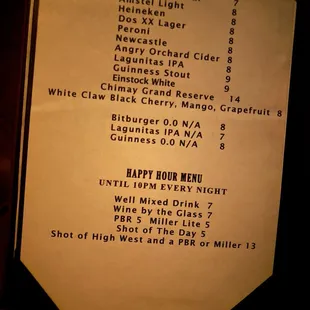 Amstel Light 7
Heineken 8
Dos XX Lager 8
Peroni 8
Newcastle 8
Angry Orchard Cider 8
Lagunitas IPA 8
Guinness Stout 9
Einstock White 9
Chimay Grand Reserve 14
White Claw Black Cherry, Mango, Grapefruit 8
Bitburger 0.0 N/A 8
Lagunitas IPA N/A 7
Guinness 0.0 N/A 8
HAPPY HOUR MENU
UNTIL 10PM EVERY NIGHT
Well Mixed Drink 7
Wine by the Glass 7
PBR 5 Miller Lite 5
Shot of The Day 5
Shot of High West and a PBR or Miller 13